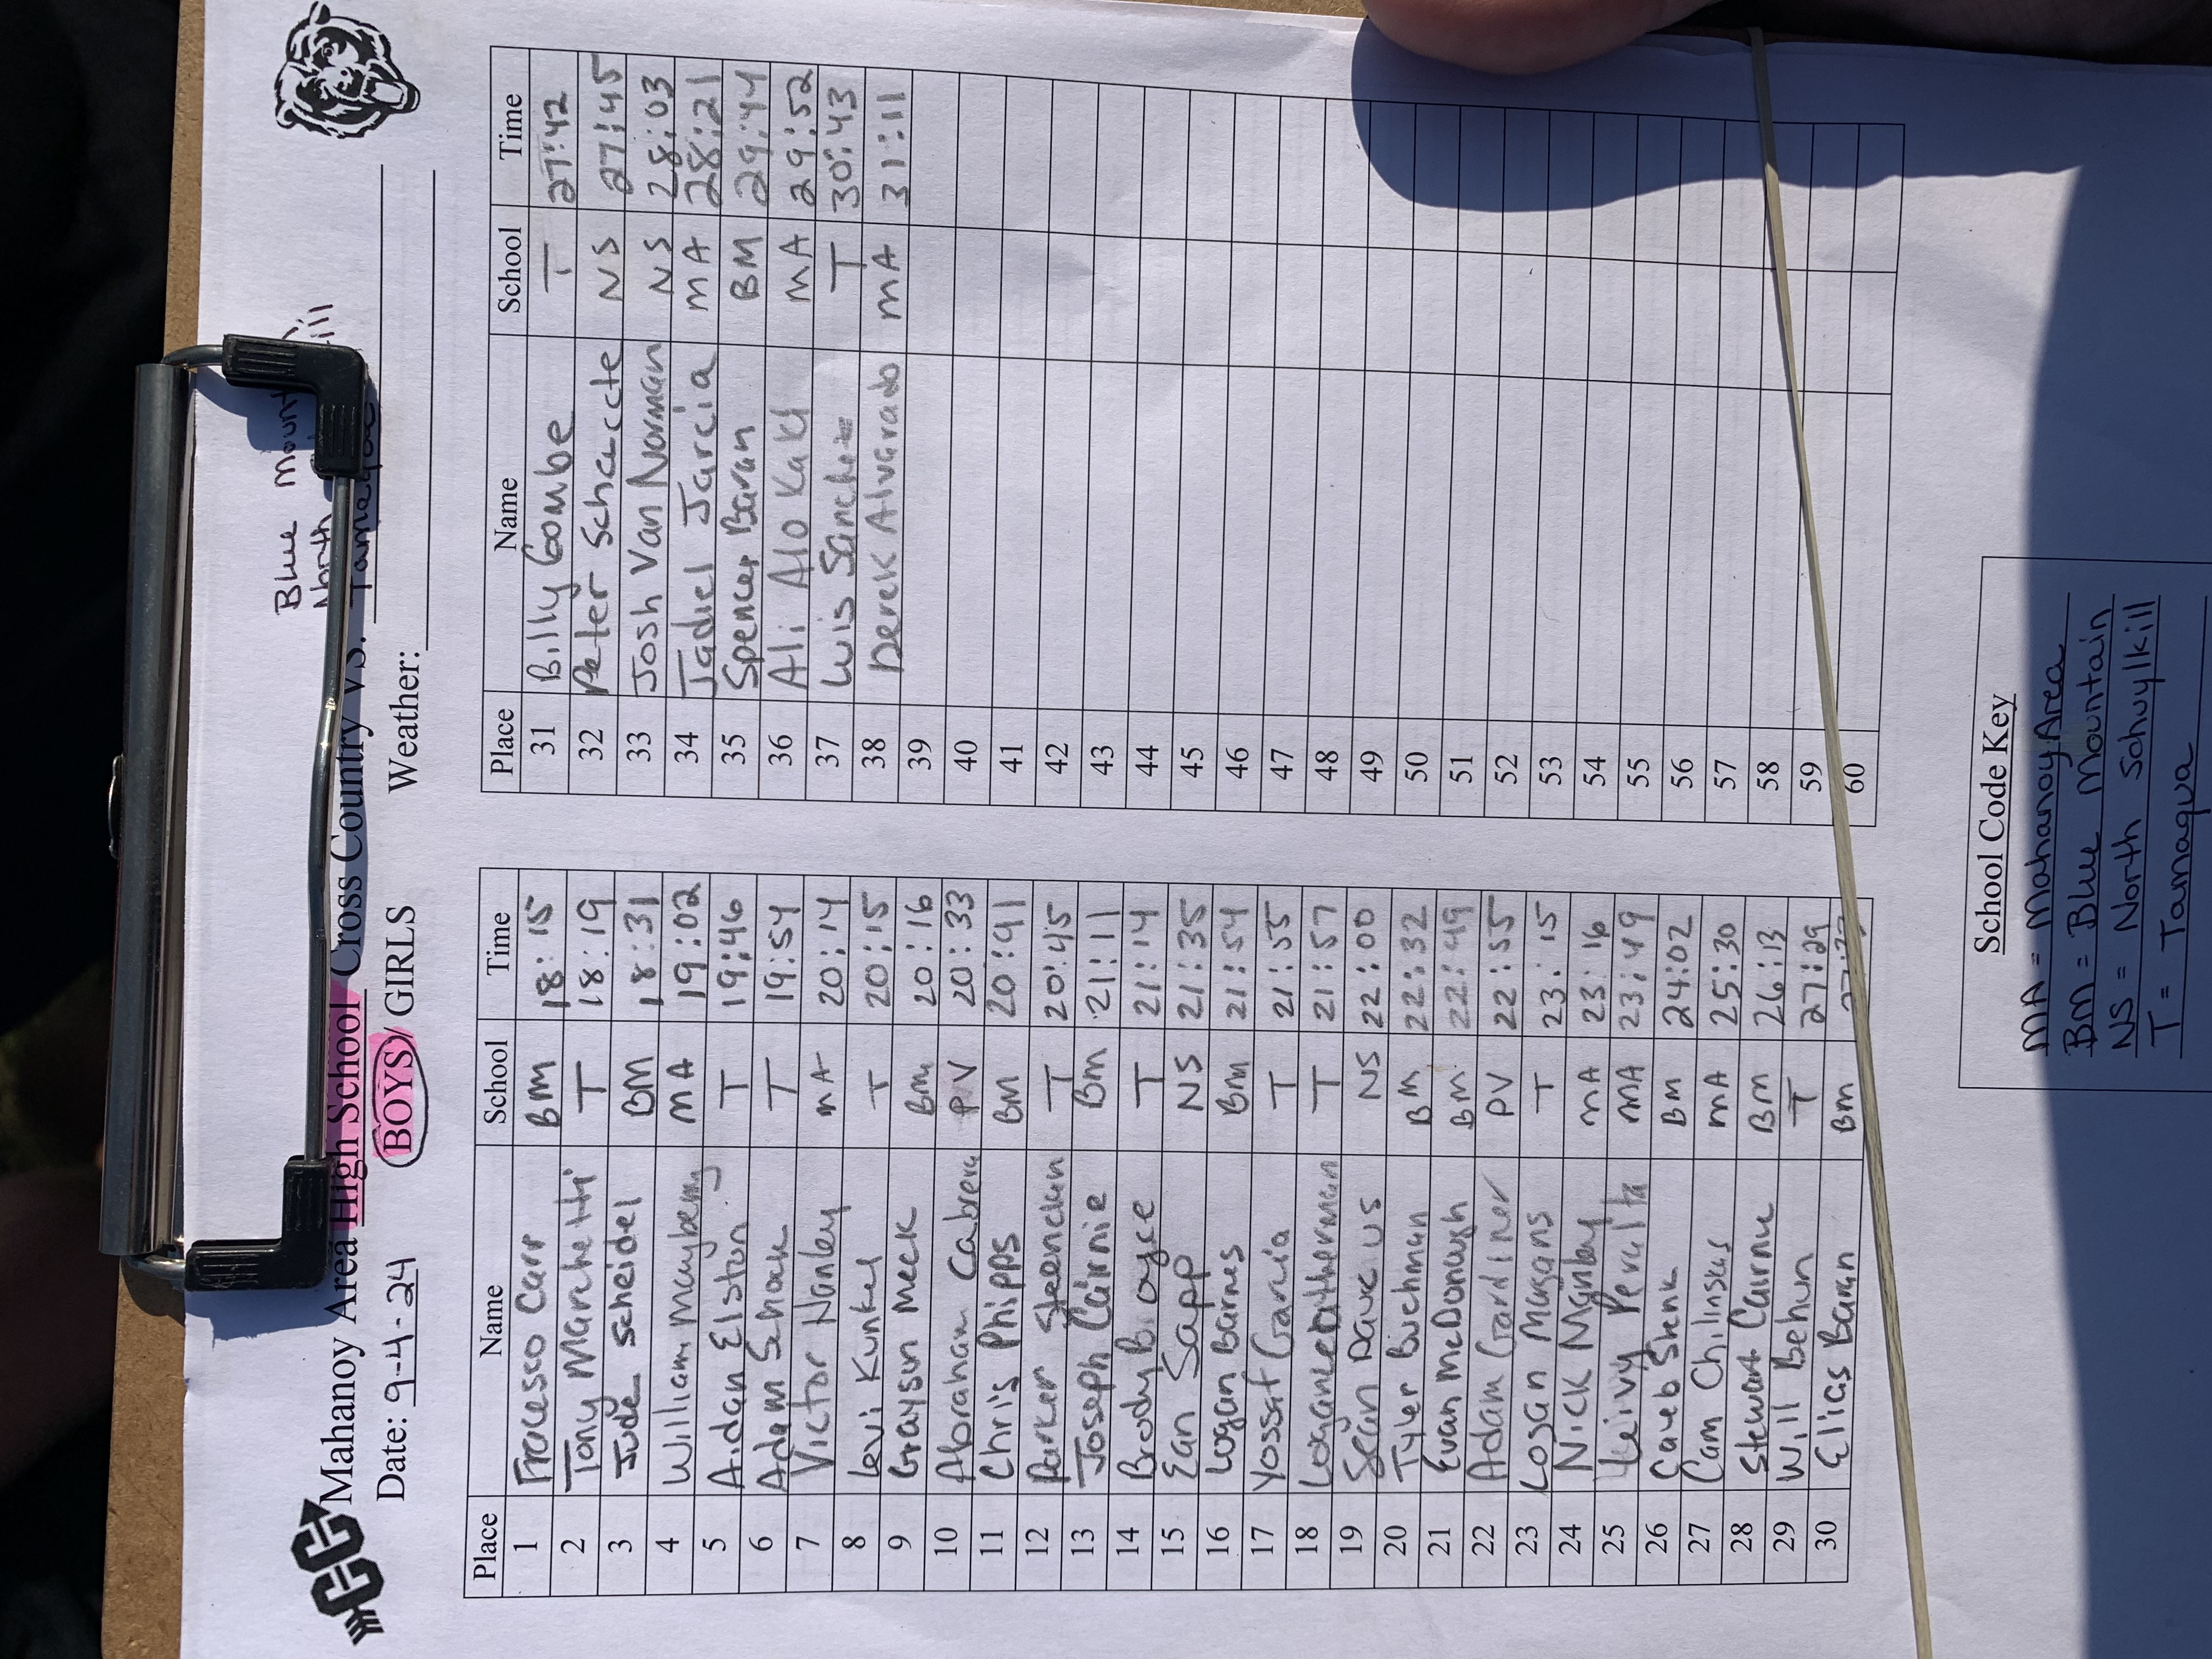 Blue Mount
North ill
Mahanoy Area High School Cross Country vs. Tamaqua
Date: 9-4-24 BOYS/ GIRLS Weather:
Place Name School Time
1 Fracesso Carr BM 18:15
2 Tony Marchetti T 18:19
3 Jude Scheidel BM 18:31
4 William Mayberry MA 19:02
5 Aidan Elston T 19:46
6 Adam Schock T 19:54
7 Victor Hanley MA 20:14
8 Levi Kunkel T 20:15
9 Grayson Meck BM 20:16
10 Abraham Cabrera PV 20:33
11 Chris Phipps BM 20:41
12 Parker T 20:45
13 Joseph Cairnie BM 21:11
14 Brody B oyce T 21:14
15 Ean Sapp NS 21:35
16 Logan Barnes BM 21:54
17 Yossef Garcia T 21:55
18 T 21:57
19 Sean NS 22:00
20 Tyler Buchman BM 22:32
21 Evan McDonough BM 22:49
22 Adam Gardiner PV 22:55
23 Logan T 23:15
24 Nick MA 23:16
25 Peralta MA 23:49
26 Caleb Shenk BM 24:02
27 Cam Chilinskas MA 25:30
28 Stewart BM 26:13
29 Will Behun T 27:29
30 Elias Baran BM
Place Name School Time
31 Billy Coombe T 27:42
32 Peter NS 27:45
33 Josh Van Norman NS 28:03
34 Jadiel Jarcia MA 28:21
35 Spencer Baran BM 29:44
36 Ali MA 29:52
37 Luis T 30:43
38 Derek Alvarado MA 31:11
39
40
41
42
43
44
45
46
47
48
49
50
51
52
53
54
55
56
57
58
59
60
School Code Key
MA = Mahanoy Area
BM = Blue Mountain
NS = North Schuylkill
T = Tamaqua